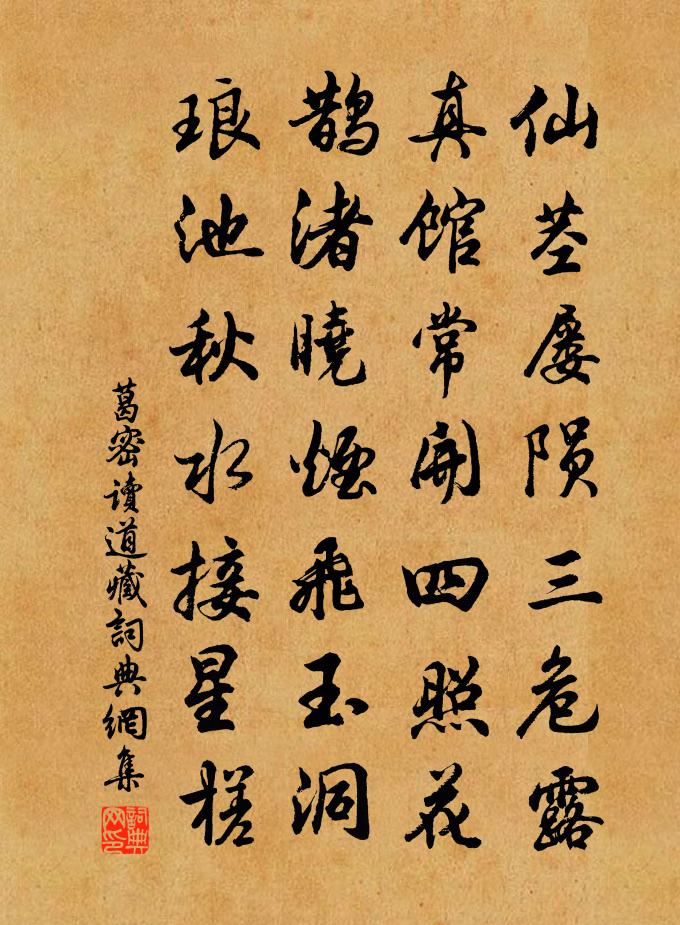 仙茎屡陨三危露
真馆常开四照花
鹊渚晓烟飞玉洞
琅池秋水接星槎
葛密读道藏词典網集
詞典网印